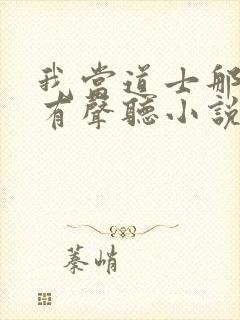 我當道士那
有聲聽小說
蓁峭